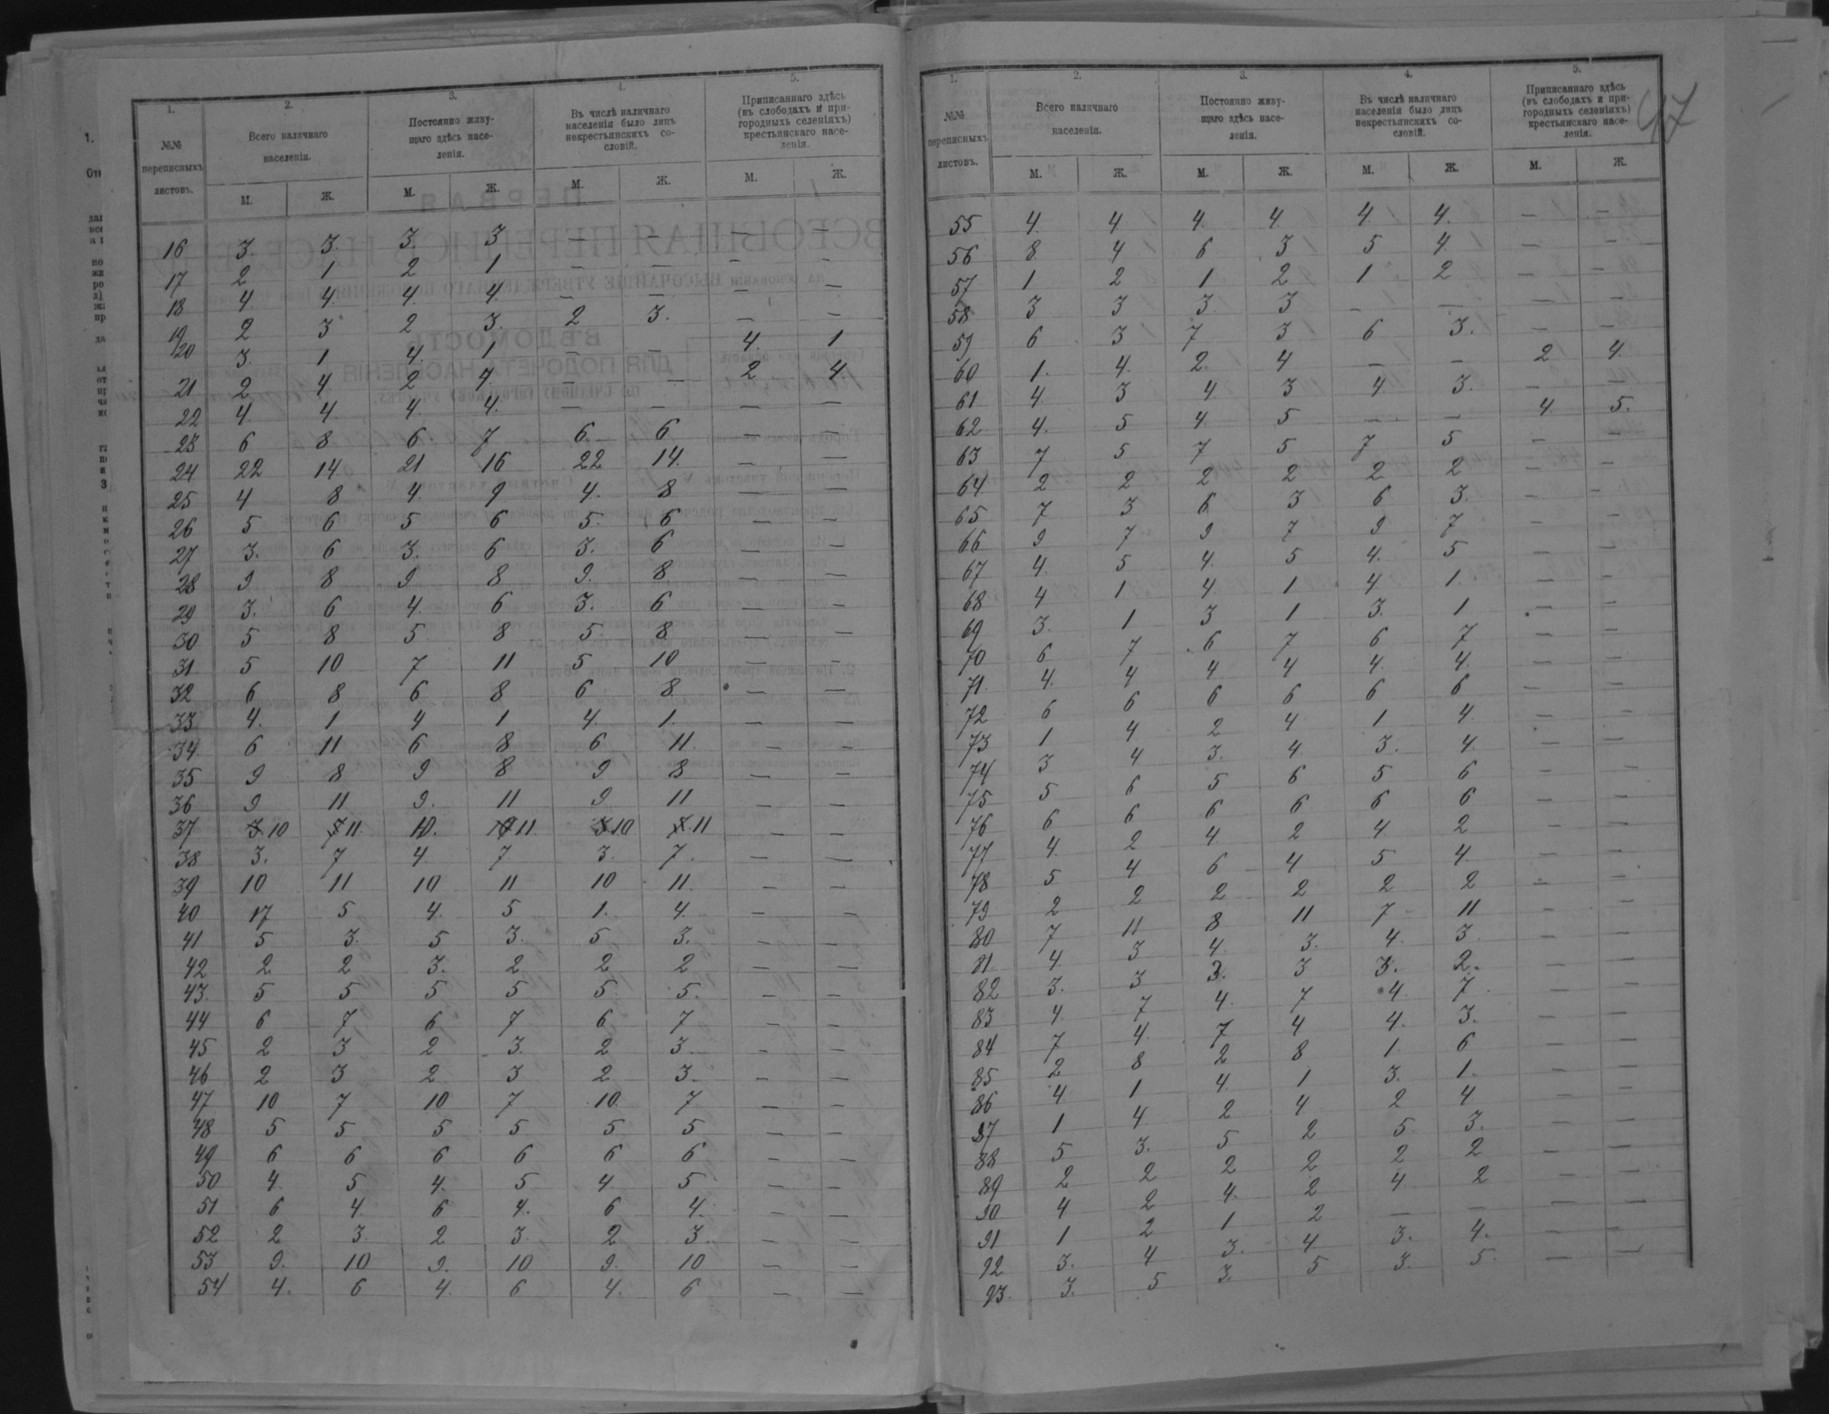 1. 2. 3. 4. 5.
№№ переписныхъ листовъ. Всего наличнаго населенія. Постоянно живущаго здѣсь населенія. Въ числѣ наличнаго населенія было лицъ некрестьянскихъ сословій. Приписаннаго здѣсь (въ слободахъ и пригородныхъ селеніяхъ) крестьянскаго населенія.
М. Ж. М. Ж. М. Ж. М. Ж.
16 3. 3. 3. 3 — — — —
17 2 1 2 1 — — — —
18 4 4. 4 4 — — — —
19 2 3 2 3. 2 3. — —
20 3. 1 4. 1 — — 4. 1
21 2 4 2 4. — — 2 4
22 4 4. 4. 4. — — — —
23 6 8 6 7 6. 6 — —
24 22 14. 21 16 22 14. — —
25 4 8 4. 9 4. 8 — —
26 5 6 5 6 5. 6 — —
27 3. 6 3. 6 3. 6 — —
28 9 8 9 8 9. 8 — —
29 3. 6 4. 6 3. 6 — —
30 5 8 5 8 5 8. — —
31 5 10 7 11 5 10 — —
32 6 8 6 8 6 8 — —
33 4. 1 4 1 4. 1. — —
34 6 11 6 8 6 11. — —
35 9 8 9 8 9 8 — —
36 9 11 9. 11 9 11 — —
37 10 11. 10. 11. 10 11 — —
38 3. 7 4. 7 3. 7. — —
39 10 11 10 11 10 11. — —
40 17 5 4. 5 1. 4. — —
41 5 3. 5 3. 5 3. — —
42 2 2 3. 2 2 2 — —
43. 5 5 5 5 5. 5. — —
44 6 7 6 7 6 7 — —
45 2 3 2 3. 2 3. — —
46 2 3 2 3 2 3. — —
47 10 7 10 7 10. 7 — —
48 5 5 5 5 5 5 — —
49 6 6 6 6 6 6 — —
50 4. 5 4. 5 4 5 — —
51 6 4. 6 4. 6 4. — —
52 2 3. 2 3. 2 3. — —
53 9. 10 9. 10 9. 10 — —
54 4. 6 4. 6 4. 6 — —
47
1. 2. 3. 4. 5.
№№ переписныхъ листовъ. Всего наличнаго населенія. Постоянно живущаго здѣсь населенія. Въ числѣ наличнаго населенія было лицъ некрестьянскихъ сословій. Приписаннаго здѣсь (въ слободахъ и пригородныхъ селеніяхъ) крестьянскаго населенія.
М. Ж. М. Ж. М. Ж. М. Ж.
55 4. 4 4. 4. 4. 4. — —
56 8 4 6 3 5 4. — —
57 1 2 1 2 1 2 — —
58 3 3 3 3 — — — —
59 6 3 7 3 6 3. — —
60 1. 4. 2. 4 — — 2 4.
61 4. 3 4 3 4 3. — —
62 4. 5 4. 5 — — 4 5.
63 7 5 7 5 7 5 — —
64. 2 2 2 2 2 2 — —
65 7 3 6. 3 6 3. — —
66 9 7 9 7 9 7 — —
67 4. 5 4. 5 4. 5 — —
68 4 1 4. 1 4 1. — —
69 3. 1 3 1 3. 1 — —
70 6 7 6 7 6 7 — —
71. 4. 4 4. 4 4. 4. — —
72 6 6 6 6 6 6 — —
73 1 4 2 4 1 4. — —
74 3 4 3. 4 3. 4. — —
75 5 6 5 6 5 6 — —
76 6 6 6 6 6 6 — —
77 4. 2 4 2 4 2 — —
78 5 4 6 4 5 4. — —
79 2 2 2 2 2 2 — —
80 7 11 8 11 7 11 — —
81 4. 3 4. 3. 4. 3 — —
82 3. 3 3. 3 3. 2. — —
83 4. 7 4. 7 4. 7 — —
84 7 4. 7 4 4. 3. — —
85 2 8 2 8 1. 6 — —
86 4 1 4. 1 3. 1. — —
87 1 4 2 4 2 4 — —
88 5 3. 5 2 5 3. — —
89 2 2 2 2 2 2 — —
90 4 2 4. 2 4 2 — —
91 1 2 1 2 — — — —
92 3. 4 3. 4 3. 4. — —
93. 3. 5 3. 5 3. 5. — —